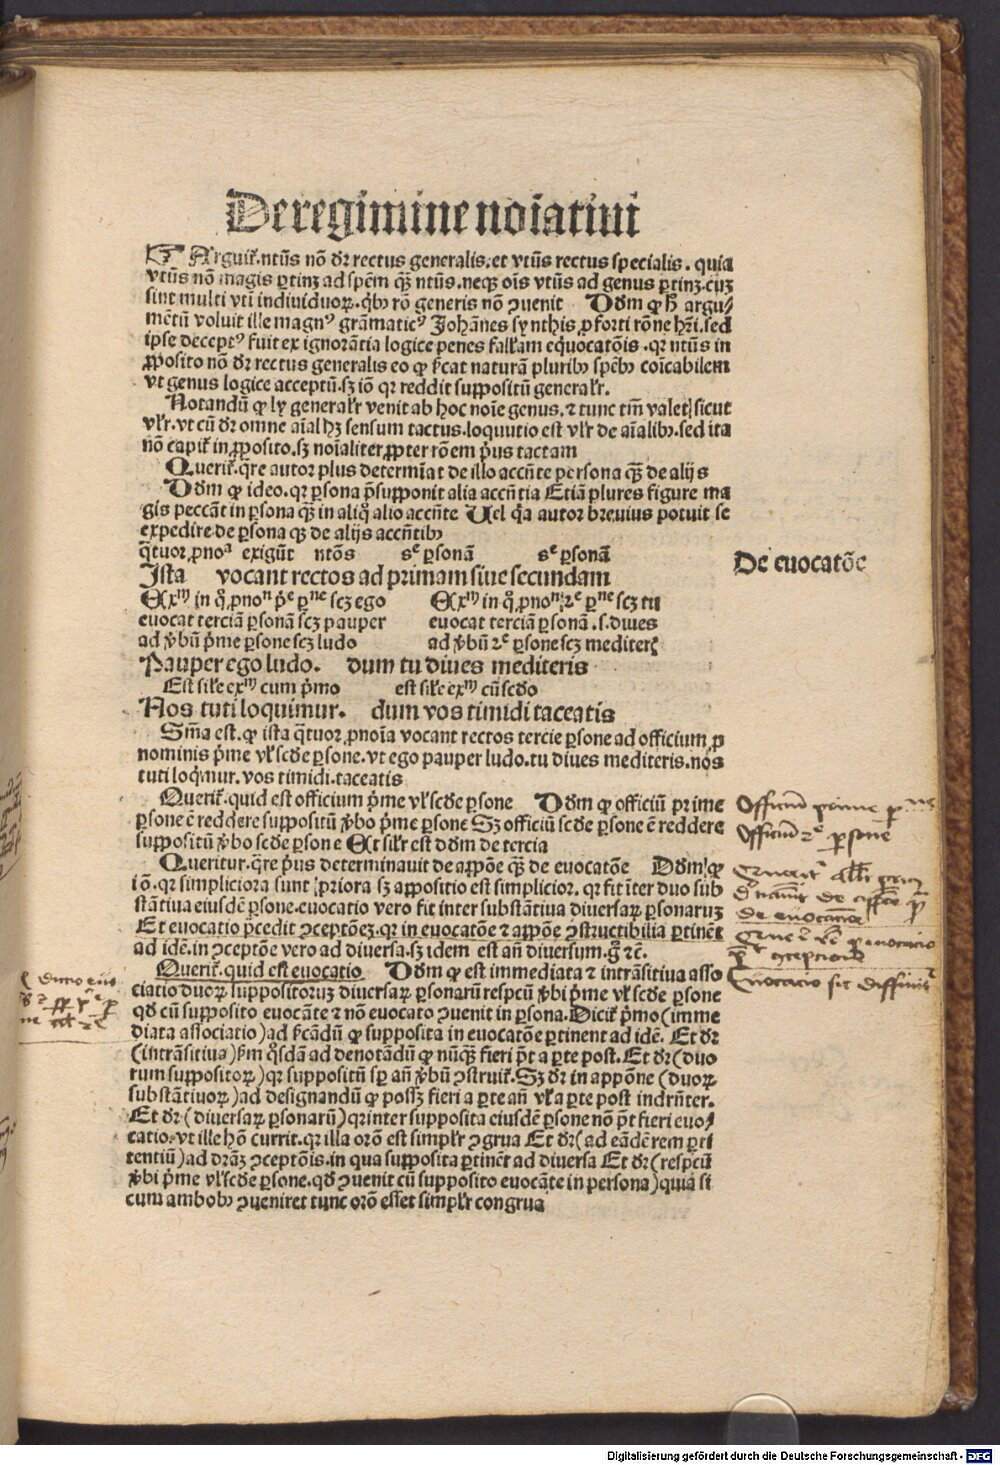 De regimine noı̄atiui
Arguit̄.ntūs nō dr̄ rectus generalis.et vtūs rectus specialis. quia
vtūs nō magis ꝑtinꝫ ad spēm qꝫ̄ ntūs.neqꝫ oīs vtūs ad genus ꝑtinꝫ.cuꝫ
sint multi vti indiuiduoꝝ.qͥbꝰ rō generis nō ꝯuenit Dōm ꝙ h̄ argu/
mētū voluit ille magnꝰ grāmaticꝰ Johānes synthis ꝓ forti rōne hr̄i.sed
ipse deceptꝰ fuit ex ignorātia logice penes fallam̄ eq̄uocatōis.qr ntūs in
ꝓposito nō dr̄ rectus generalis eo ꝙ p̄cat naturā pluribꝰ spēbꝰ coīcabilem
vt genus logice acceptū.sꝫ iō qr reddit suppositū general̄r.
Notandū ꝙ ly general̄r venit ab hoc noīe genus.⁊ tunc tm̄ valet sicut
vl̄r.vt cū dr̄ omne aīal hꝫ sensum tactus.loquutio est vl̄r de aīalibꝰ.sed ita
nō capit̄ in ꝓposito.sꝫ noīaliter ꝓpter rōem p̄us tactam
Querit̄.q̄re autor plus determīat de illo accn̄te persona qꝫ̄ de alijs
Dōm ꝙ ideo.qr ꝑsona p̄supponit alia accn̄tia Etiā plures figure ma
gis peccāt in ꝑsona qꝫ̄ in aliq̄ alio accn̄te Uel q̄a autor breuius potuit se
expedire de ꝑsona qꝫ̄ de alijs accn̄tibꝰ
q̄tuor ꝓnoᵃ exigūt ntōs sᵉ ꝑsonā sᵉ ꝑsonā
De euocatōe
Ista vocant rectos ad primam siue secundam
Exᵐ in q̊ ꝓnoⁿ p̄ᵉ ꝑⁿᵉ scꝫ ego Exᵐ in q̊ ꝓnoⁿ ⁊ᵉ ꝑⁿᵉ scꝫ tu
euocat terciā ꝑsonā scꝫ pauper euocat terciā ꝑsonā .s.diues
ad v̄bū p̄me ꝑsone scꝫ ludo ad v̄bū ⁊ᵉ ꝑsone scꝫ mediteris
Pauper ego ludo. dum tu diues mediteris
Est sil̄e exᵐ cum p̄mo est sil̄e exᵐ cū scd̄o
Nos tuti loquimur. dum vos timidi taceatis
Sm̄a est.ꝙ ista q̄tuor ꝓnoīa vocant rectos tercie ꝑsone ad officium ꝓ
nominis p̄me vl̄ scd̄e ꝑsone.vt ego pauper ludo.tu diues mediteris.nos
tuti loqͥmur.vos timidi.taceatis
Querit̄.quid est officium p̄me vl̄ scd̄e ꝑsone Dōm ꝙ officiū prime
ꝑsone ē reddere suppositū v̄bo p̄me ꝑsone Sꝫ officiū scd̄e ꝑsone ē reddere
suppositū v̄bo scd̄e ꝑsone Et sil̄r est dōm de tercia
Queritur.q̄re p̄us determinauit de appōe qꝫ̄ de euocatōe Dōm ꝙ
iō.qr simpliciora sunt priora sꝫ appositio est simplicior.qr fit īter duo sub
stātiua eiusdē ꝑsone.euocatio vero fit inter substātiua diuersaꝝ ꝑsonaruꝫ
Et euocatio p̄cedit ꝯceptōeꝫ.qr in euocatōe ⁊ appōe ꝯstructibilia ꝑtinēt
ad idē.in ꝯceptōe vero ad diuersa.sꝫ idem est an̄ diuersum.g̊ ⁊c̄.
Querit̄.quid est euocatio Dōm ꝙ est immediata ⁊ intrāsitiua asso
ciatio duoꝝ suppositoruꝫ diuersaꝝ ꝑsonarū respcū v̄bi p̄me vl̄ scd̄e ꝑsone
qd̄ cū supposito euocāte ⁊ nō euocato ꝯuenit in ꝑsona.Dicit̄ p̄mo (imme
diata associatio) ad p̄cādū ꝙ supposita in euocatōe ꝑtinent ad idē. Et dr̄
(intrāsitiua) ẜm q̊sdā ad denotādū ꝙ nūqꝫ̄ fieri p̄t a ꝑte post. Et dr̄ (duo
rum suppositoꝝ) qr suppositū sꝑ an̄ v̄bū ꝯstruit̄.Sꝫ dr̄ in appōne (duoꝝ
substātiuoꝝ) ad designandū ꝙ possꝫ fieri a ꝑte an̄ vl̄ a ꝑte post indrn̄ter.
Et dr̄ (diuersaꝝ ꝑsonarū) qr inter supposita eiusdē ꝑsone nō p̄t fieri euo/
catio.vt ille hō currit.qr illa orō est simpl̄r ꝯgrua Et dr̄ (ad eādē rem ꝑti
tentiū) ad drāꝫ ꝯceptōis.in qua supposita ꝑtinēt ad diuersa Et dr̄ (respcū
v̄bi p̄me vl̄ scd̄e ꝑsone.qd̄ ꝯuenit cū supposito euocāte in persona) quia si
cum ambobꝰ ꝯueniret tunc orō esset simpl̄r congrua
Officiū prime ꝑⁿᵉ
Officiū 2ᵉ ꝑsone
de euocacōe
Euocacio sic diffinit̄
Digitalisierung gefördert durch die Deutsche Forschungsgemeinschaft - DFG